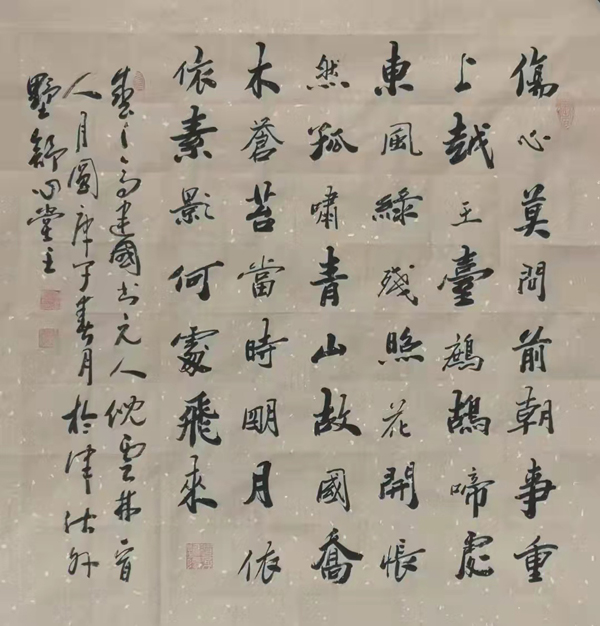 傷心莫問前朝事重
上越王臺鷓鴣啼處
東風綠殘照花開悵
然孤嘯青山故國喬
木蒼苔當時明月依
依素影何處飛來
高建國书元人倪雲林首
人月圓庚子春月於津沽外
墅舒心堂主